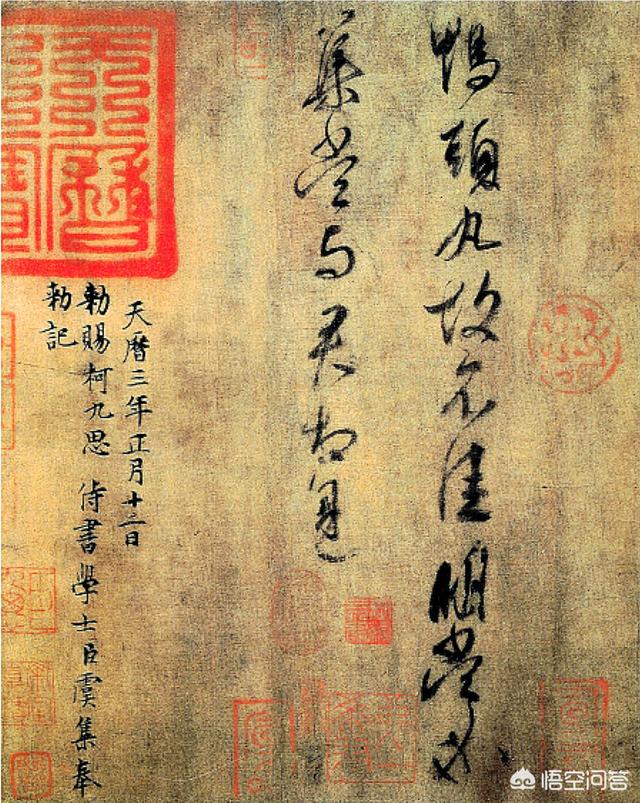 鴨頭丸故不佳明當必
集當与君相見
天曆
天暦三年正月十二日
勑賜柯九思 侍書學士臣虞集奉
勑記
悟空问答